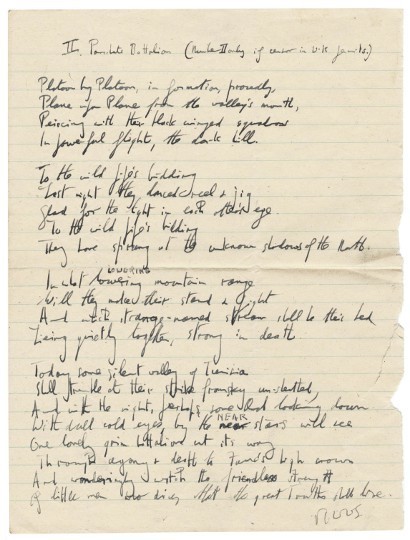 II. Parachute Battalion (Number II only if censor in W.O. permits.)
Platoon by Platoon, in formation, proudly,
Plane upon Plane from the valley's mouth,
Piercing with their black winged squadrons
In powerful flight, the dark hill.
To the wild fife's bidding
Last night they danced reel & jig
Glad for the light in each other's eye
To the wild fife's bidding
They have sprung at the unknown shadows of the North.
In what lowering mountain range
LOWERING
Will they make their stand & fight
And what strange-named stream shall be their bed
Lying quietly together, strong in death
Today some silent valley of Tunisia
Shall tremble at their
And with the night, perhaps some looking down
With dull cold eyes, by the near stars will see
NEAR
One lonely grim battalion cut its way
Through agony & death to fame's high crown
And wonderingly watch the friendless strength
Of little men who die that the great Truths shall live.